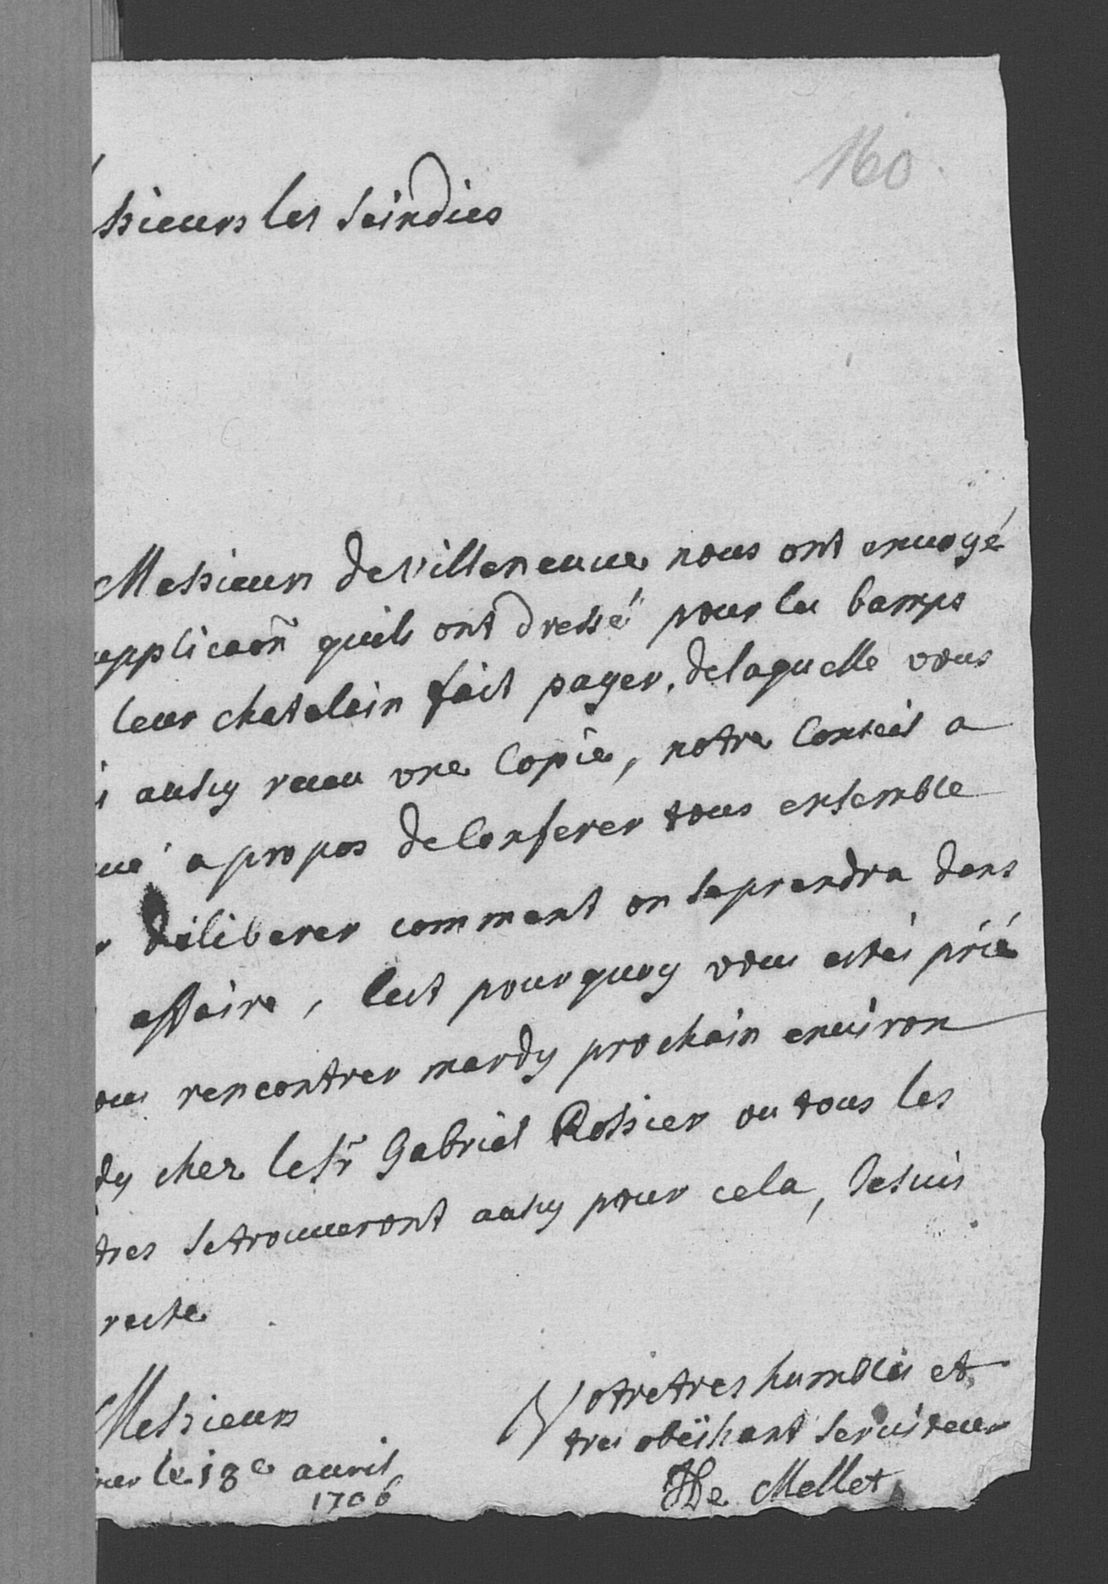 160
ssieurs les Seindics
Messieurs de Villeneuve nous ont envoyé
upplicaõn quils ont dressé pour les bamps
leur chatelain fait payer, de laquelle vous
aussy receu une Copie, notre Conseil a
ué a propos de Conferer tous ensemble
r déliberer comment on se prendra dans
affaire, Cest pourquoy vous estes prié
ous rencontrer mardy prochain environ
dy chez le Sr Gabriel Rossier ou tous les
tres se trouveront aussy pour cela, Je suis
reste
Messieurs
Votre tres humbles et
tres obeïssant serviteur
le 18e avril
1706
De Mellet